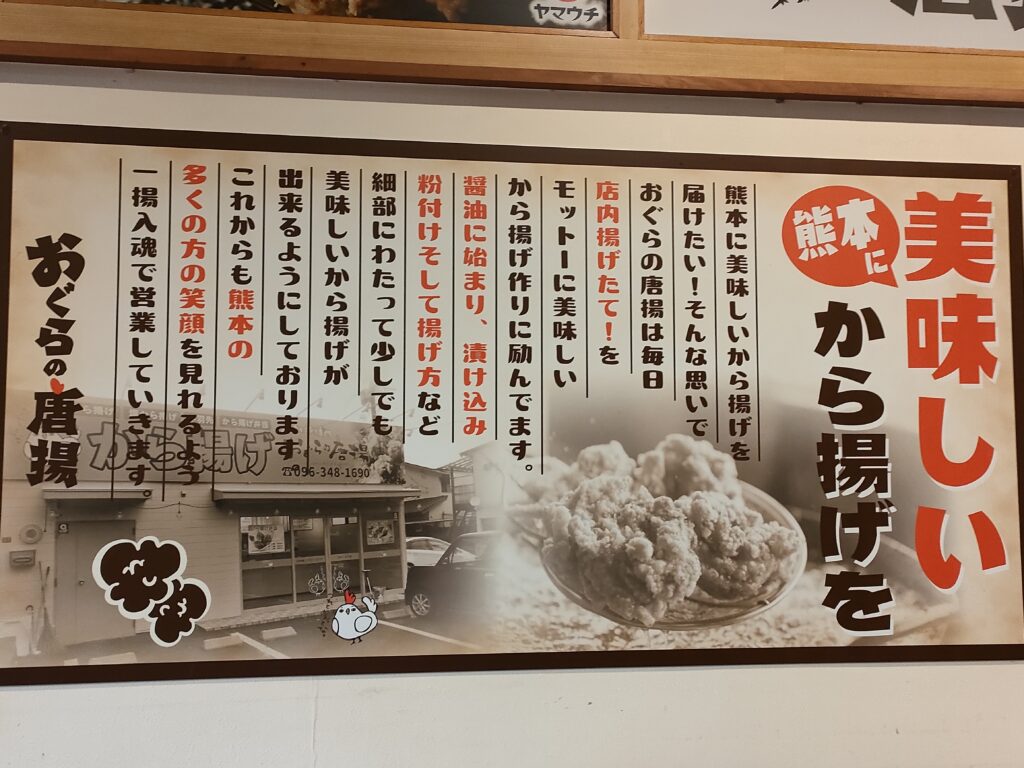 ヤマウチ
美味しい
熊本に
から揚げを
熊本に美味しいから揚げを
届けたい！そんな思いで
おぐらの唐揚は毎日
店内揚げたて！を
モットーに美味しい
から揚げ作りに励んでます。
醤油に始まり、漬け込み
粉付けそして揚げ方など
細部にわたって少しでも
美味しいから揚げが
出来るようにしております。
これからも熊本の
多くの方の笑顔を見れるよう
一揚入魂で営業していきます。
おぐらの唐揚
から揚げ
☎096-348-1690